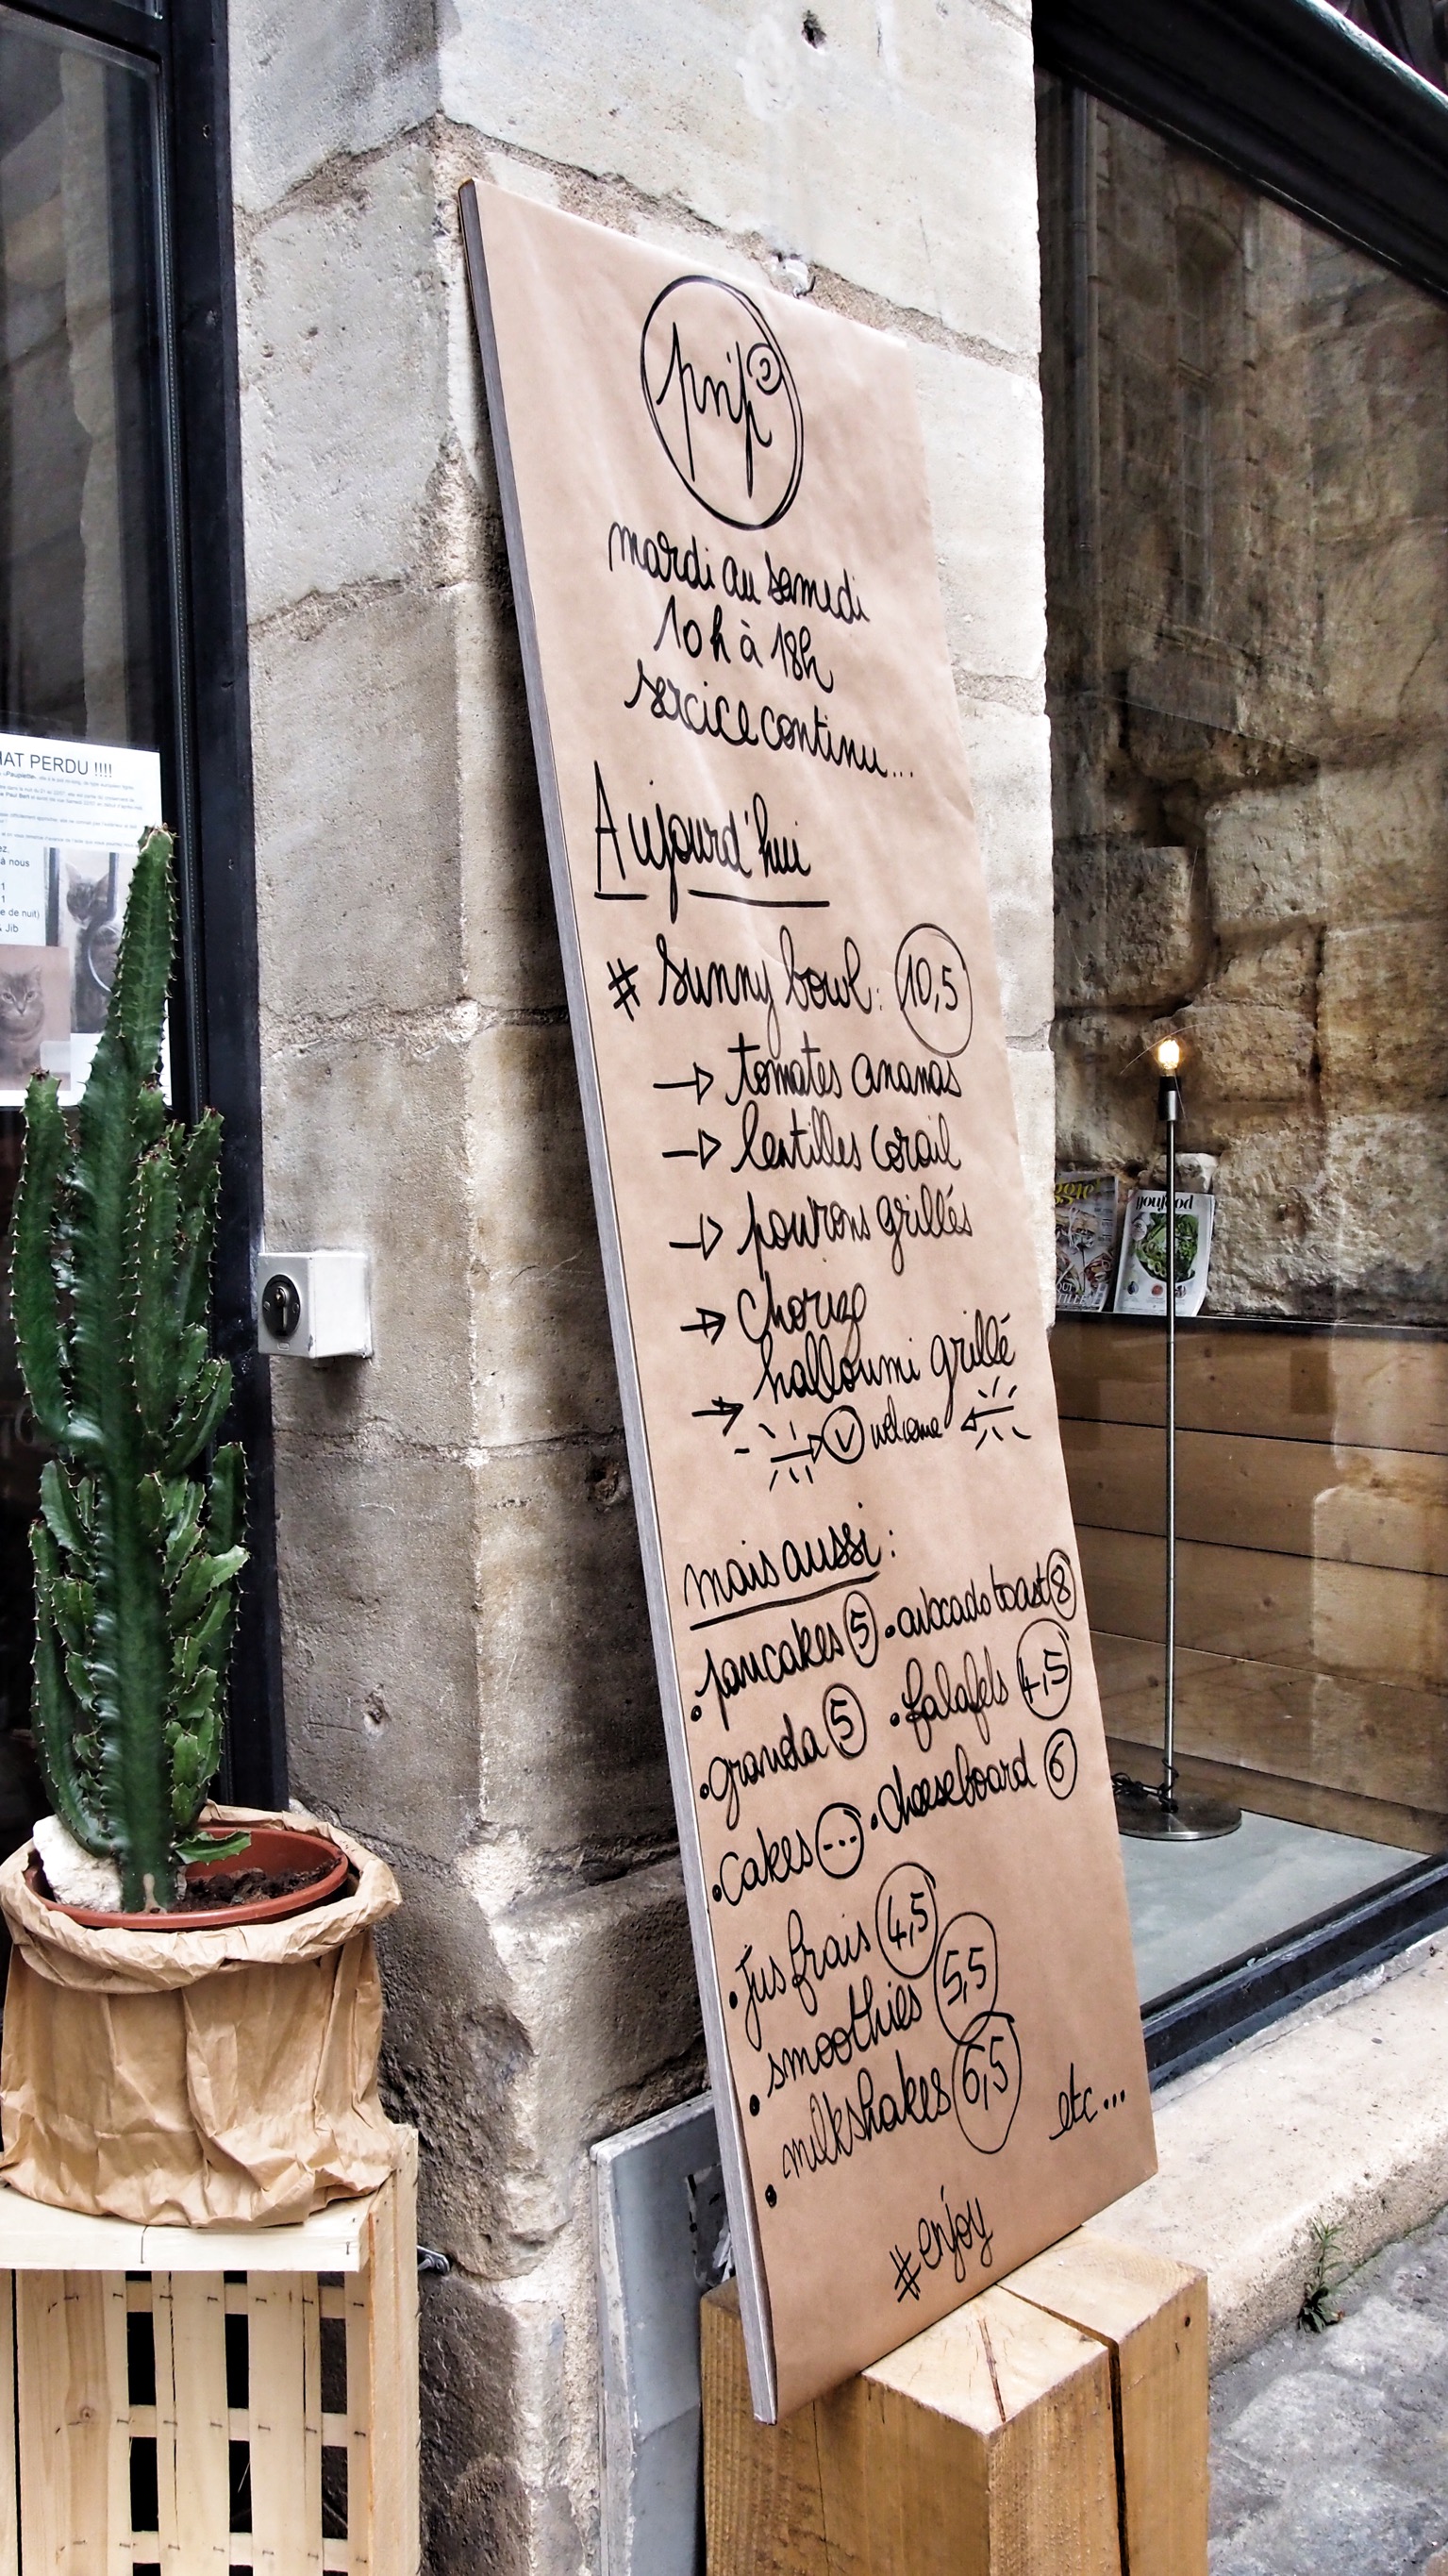 HAT PERDU !!!!
à nous
e de nuit)
& Jib
mardi au samedi
10h à 18h
service continu...
Aujourd'hui
# Sunny bowl : 10,5
→ tomates ananas
→ lentilles corail
→ poivrons grillés
→ chorizo
→ halloumi grillé
→ V welcome ←
mais aussi :
• pancakes 5 • avocado toast 8
• granola 5 • falafels 4,5
• cakes ... • cheeseboard 6
• jus frais 4,5
• smoothies 5,5
• milkshakes 6,5
etc...
#enjoy
youfood